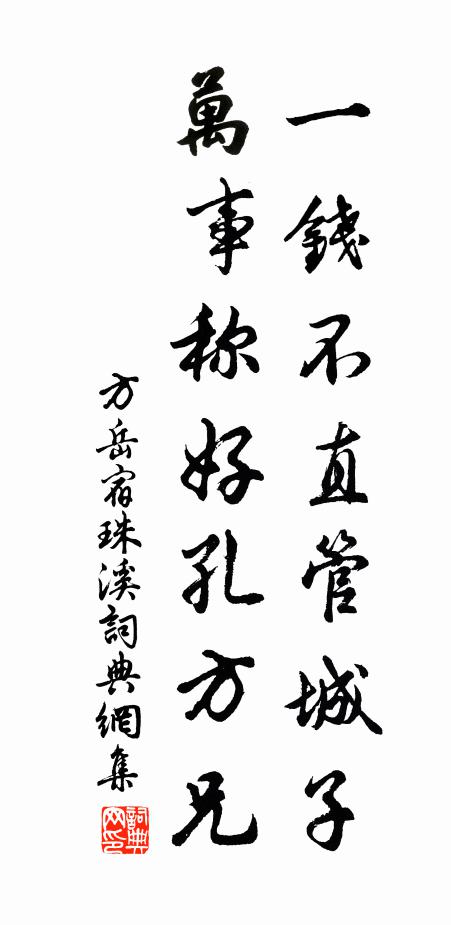 一錢不直管城子
萬事称好孔方兄
方岳宿珠溪詞典網集
詞典网印